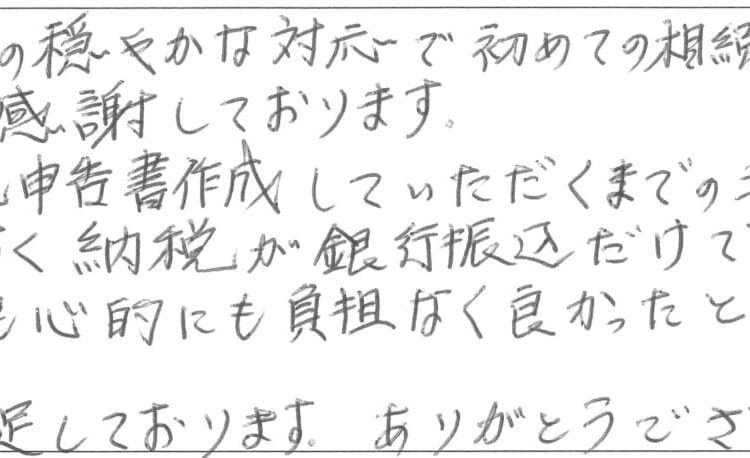 の穏やかな対応で初めての相続
感謝しております。
申告書作成していただくまでの
く納税が銀行振込だけで
心的にも負担なく良かったと
足しております。ありがとうござ